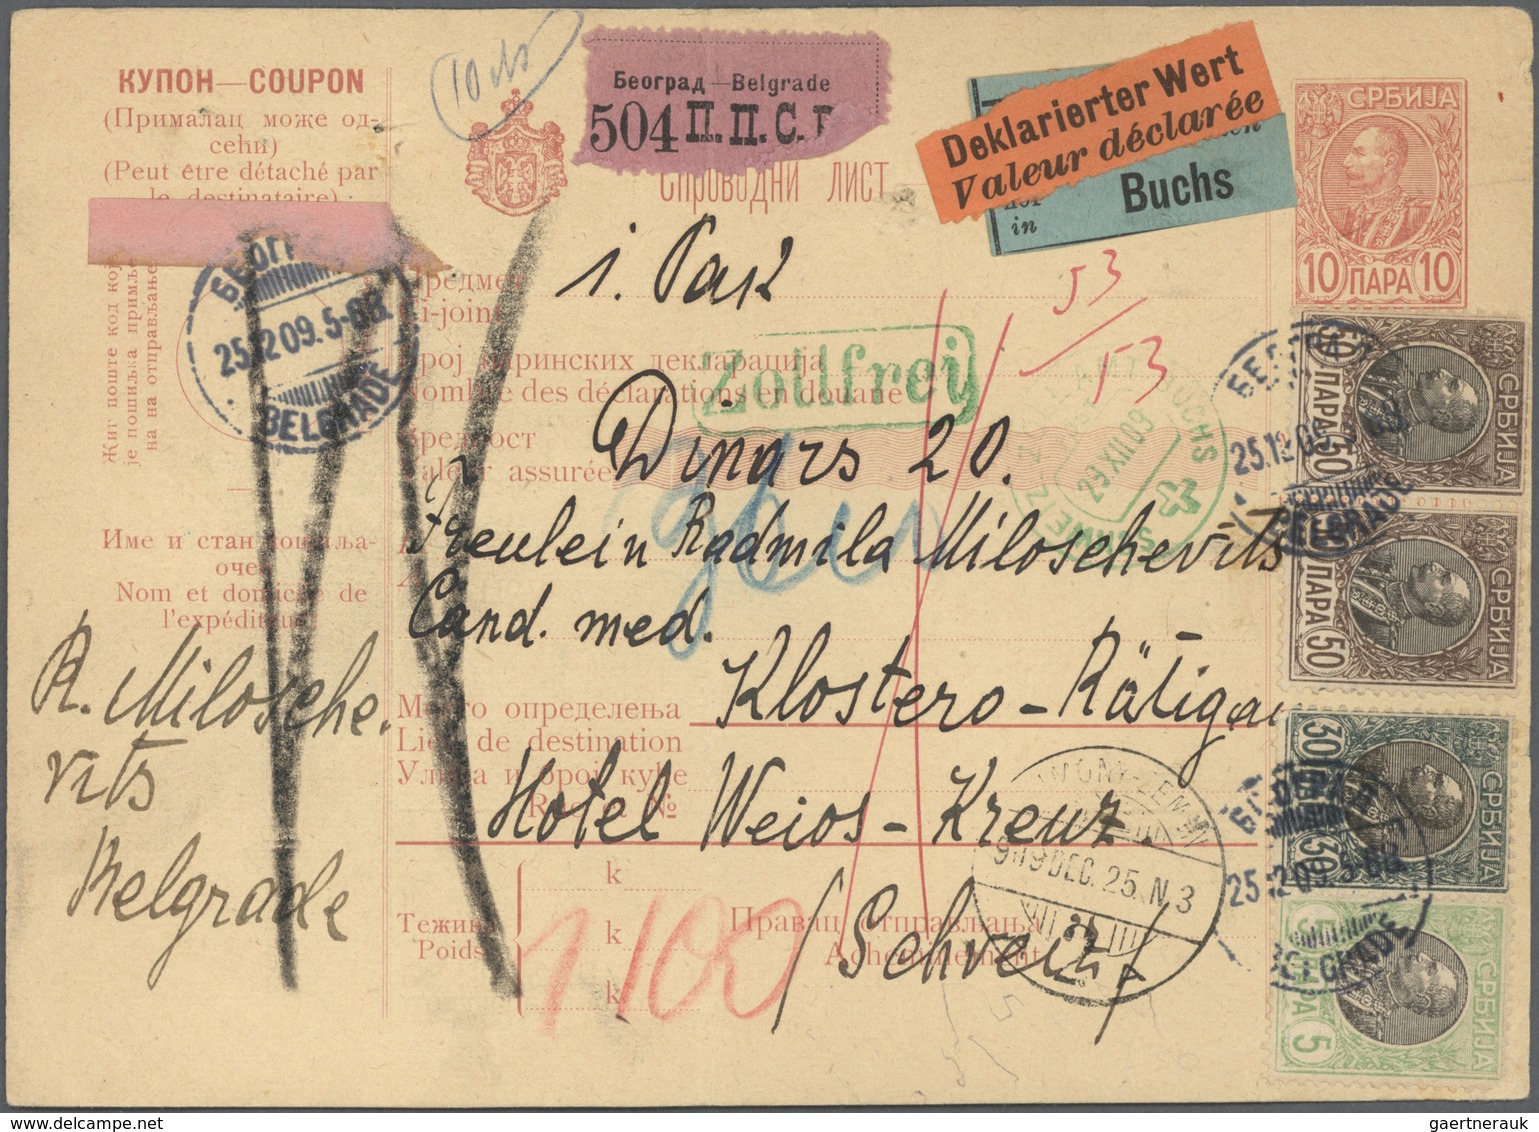 КУПОН—COUPON
(Прималац може од-
сећи)
(Peut être détaché par
le destinataire)
10
Београд—Belgrade
504 П.П.С.Г
СПРОВОДНИ ЛИСТ
Deklarierter Wert
Valeur déclarée
Buchs
in
СРБИЈА
10 ПАРА 10
Жиг поште код које
је пошиљка примљена
на отправљање
25.12 09. 5-6
BELGRADE
Предмет
Ci-joint
1. Pak
53
53
Број царинских декларација
Nombre des déclarations en douane
Zollfrei
BUCHS
29 XII 09
Вредност
Valeur assurée
Dinars 20.
Freulein Radmila Miloschevits
Cand. med.
Име и стан пошиља-
очев
Nom et domicile de
l'expéditeur
R. Milosche.
vits
Belgrade
Место определења
Lieu de destination
Klostero-Rätigan
Улица и број куће
Rue et №
Hotel Weios-Kreuz
/Schveiz/
Тежина
Poids
k
k
k
1100
Правац отправљања
Acheminement
ZIMONY-ZEMUN
909 DEC. 25. N. 3
БЕОГРАД
25.12 09
BELGRADE
50 ПАРА 50
СРБИЈА
ПАРА 50
СРБИЈА
30 30
СРБИЈА
25.12 09. 5-6
BELGRADE
5 ПАРА 5
СРБИЈА
gaertnerauk.com